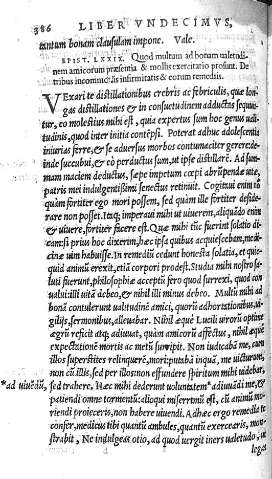 386 LIBER VNDECIMVS,
tantum bonam clausulam impone. Vale.
EPIST. LXXIX. Quod multum ad bonam valetudi-
nem amicorum præsentia & mollis exercitatio prosint. De
tribus incommodis infirmitatis & eorum remediis.
VExari te distillationibus crebris ac febriculis, quæ lon-
gas distillationes & in consuetudinem adductas sequun-
tur, eo molestius mihi est, quia expertus sum hoc genus ual-
tudinis, quod inter initia contēpsi. Poterat adhuc adolescentia
iniurias ferre, & se aduersus morbos contumaciter gerere: de-
inde succubui, & eò perductus sum, ut ipse distillarē. Ad sum-
mam maciem deductus, sæpe impetum cœpi abrupendæ uitæ,
patris mei indulgentissimi senectus retinuit. Cogitaui enim nō
quàm fortiter ego mori possem, sed quàm ille fortiter deside-
rare non posset. Itaq; imperaui mihi ut uiuerem, aliquādo enim
& uiuere, fortiter facere est. Quæ mihi tūc fuerint solatio di-
cam: si prius hoc dixerim, hæc ipsa quibus acquiescebam, medi-
cinæ uim habuisse. In remediū cedunt honesta solatia, et quic-
quid animū erexit, etiā corpori prodest. Studia mihi nostra sa-
luti fuerunt, philosophiæ acceptū fero quod surrexi, quod con-
ualui: illi uitā debeo, & nihil illi minus debeo. Multū mihi ad
bonā contulerunt ualitudinē amici, quorū adhortationibus, ui-
gilijs, sermonibus, alleuabar. Nihil æquè Lucili uirorū optime
ægrū reficit atq; adiuuat, quàm amicorū affectus, nihil æquè
expectationē mortis ac metū surripit. Non iudicabā me, cum
illos superstites relinquerē, mori: putabā inquā, me uicturum,
non cū illis, sed per illos: non effundere spiritum mihi uidebar,
*ad uiuēdū, sed trahere. Hæc mihi dederunt voluntatem* adiuuādi me, &
patiendi omne tormentū: alioqui miserrimū est, cū animū mo-
riendi proieceris, non habere uiuendi. Ad hæc ergo remedia te
cōfer, medicus tibi quantū ambules, quantū exercearis, mon-
strabit, Ne indulgeas otio, ad quod vergit iners ualetudo, ut
legas